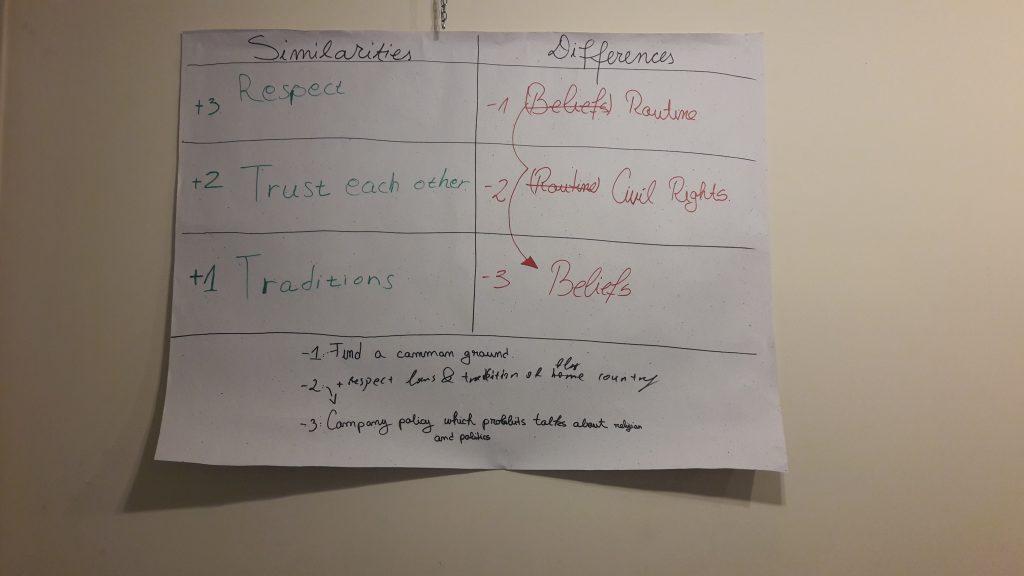 Similarities Differences
+3 Respect
-1 (Beliefs) Routine
+2 Trust each other
-2 (Routine) Civil Rights.
+1 Traditions
-3 Beliefs
-1: Find a common ground.
-2: + respect laws & tradition of home country
-3: Company policy which prohibits talks about religion
and politics